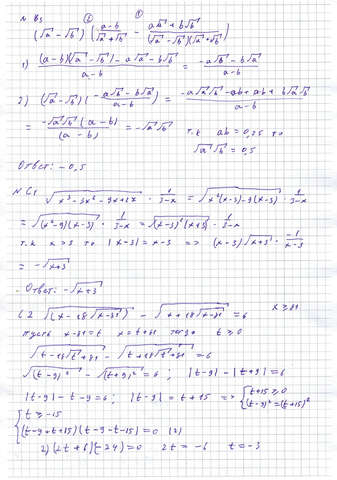 N B3
(√a - √b) ( (a-b)/(√a+√b) - (a√a + b√b)/((√a-√b)(√a+√b)) )
1) ((a-b)(√a-√b) - a√a - b√b)/(a-b) = (-a√b - b√a)/(a-b)
2) (√a-√b)( (-a√b - b√a)/(a-b) ) = (-a√a√b - ab + ab + b√a√b)/(a-b)
= (-√a√b (a-b))/((a-b)) = -√a√b т.к ab = 0,25 то
√a √b = 0,5
Ответ: -0,5
N C1 √(x³-3x²-9x+27) · 1/(3-x) = √(x²(x-3)-9(x-3)) · 1/(3-x)
= √((x²-9)(x-3)) · 1/(3-x) = √((x-3)²(x+3)) · 1/(3-x)
т.к x>3 то |x-3| = x-3 => (x-3)√(x+3) · -1/(x-3)
= -√(x+3)
Ответ: -√(x+3)
C2 √(x-18√(x-81)) - √(x+18√(x-81)) = 6 x ≥ 81
пусть x-81=t x=t+81 тогда t ≥ 0
√(t-18√t+81) - √(t+18√t+81) = 6
√((t-9)²) - √((t+9)²) = 6; |t-9| - |t+9| = 6
|t-9| - t - 9 = 6; |t-9| = t+15 => { t+15 ≥ 0
(t-9)² = (t+15)²
{ t ≥ -15
(t-9+t+15)(t-9-t-15) = 0 (2)
2) (2t+6)(-24) = 0 2t = -6 t = -3